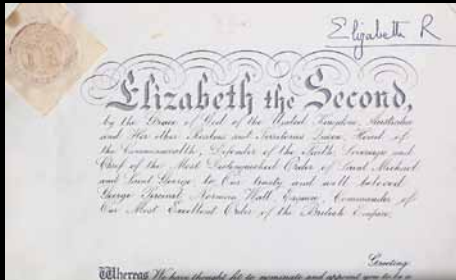 Elizabeth R
Elizabeth the Second,
by the Grace of God of the United Kingdom, Australia
and Her other Realms and Territories Queen, Head of
the Commonwealth, Defender of the Faith, Sovereign and
Chief of the Most Distinguished Order of Saint Michael
and Saint George to Our trusty and well beloved
George Percival Norman Watt Esquire, Commander of
Our Most Excellent Order of the British Empire,
Greeting
Whereas We have thought fit to nominate and appoint you to be a